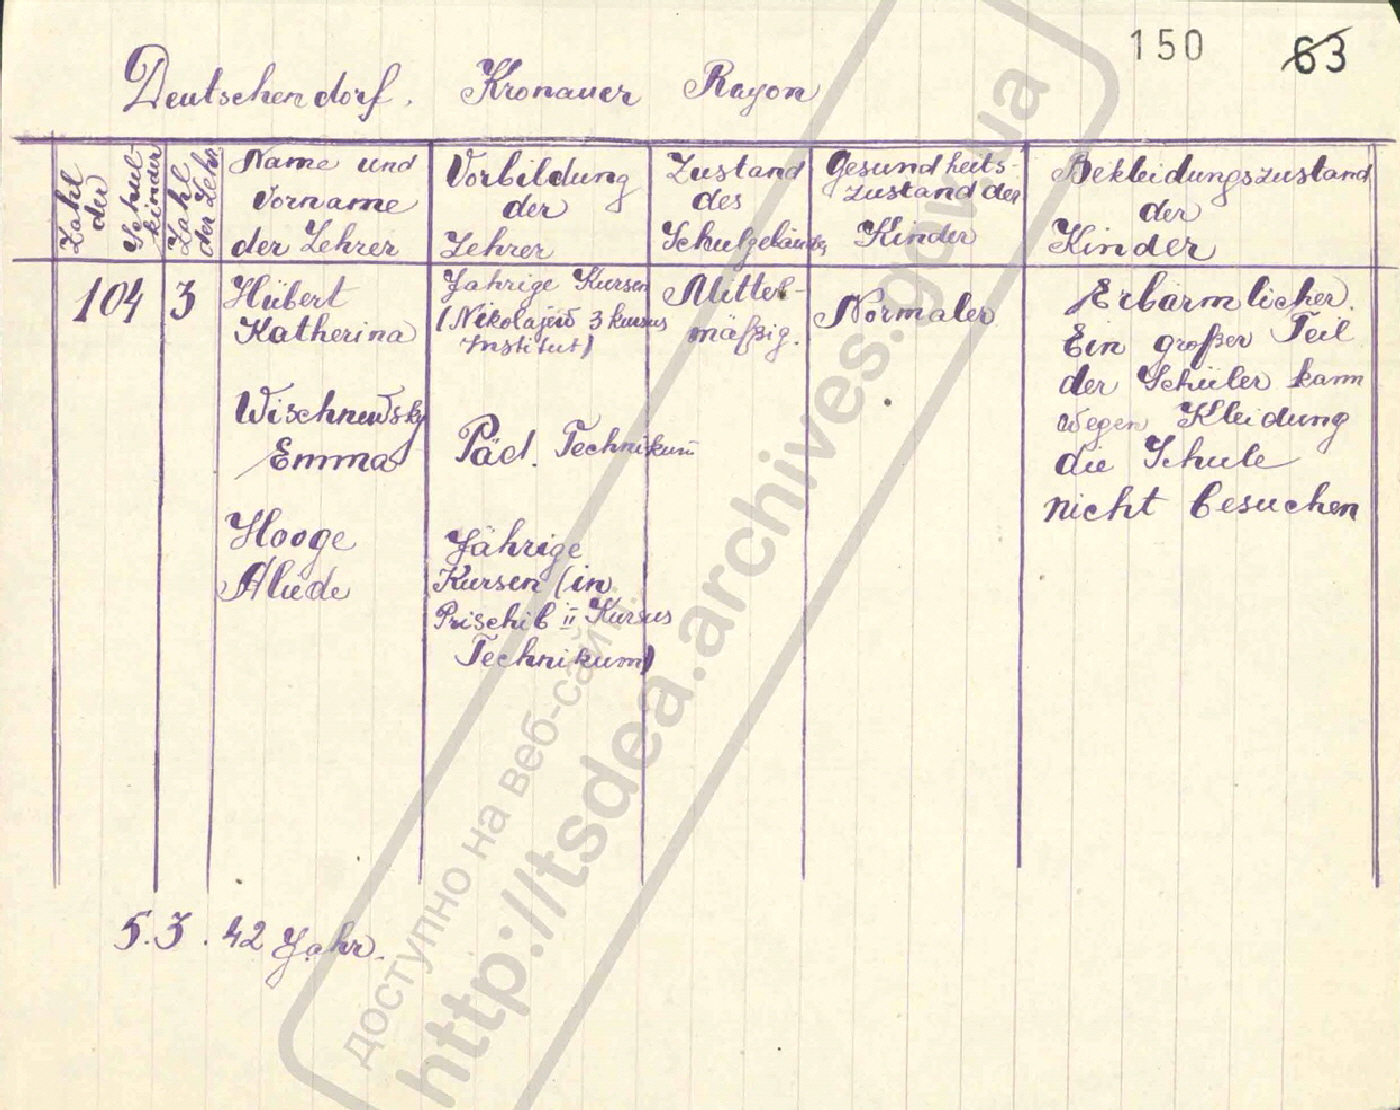 150 63
Deutschendorf. Kronauer Rayon
Zahl der Schulkinder
Zahl der Lehr
Name und
Vorname
der Lehrer
Vorbildung
der
Lehrer
Zustand
des
Schulgebäudes
Gesundheits-
zustand der
Kinder
Bekleidungszustand
der
Kinder
104
3
Hübert
Katherina
Jahrige Kursen
(Nikolajew 3 kursus
Institut)
Mittel-
mäßig.
Normaler
Erbärmlicher.
Ein großer Teil
der Schüler kann
wegen Kleidung
die Schule
nicht besuchen
Wischnewsky
Emma
Päd. Technikum
Hooge
Aliede
Jährige
Kursen (in
Prischib II Kursus
Technikum)
5.3.42 Jahr.
доступно на веб-сайті:
http://tsdea.archives.gov.ua